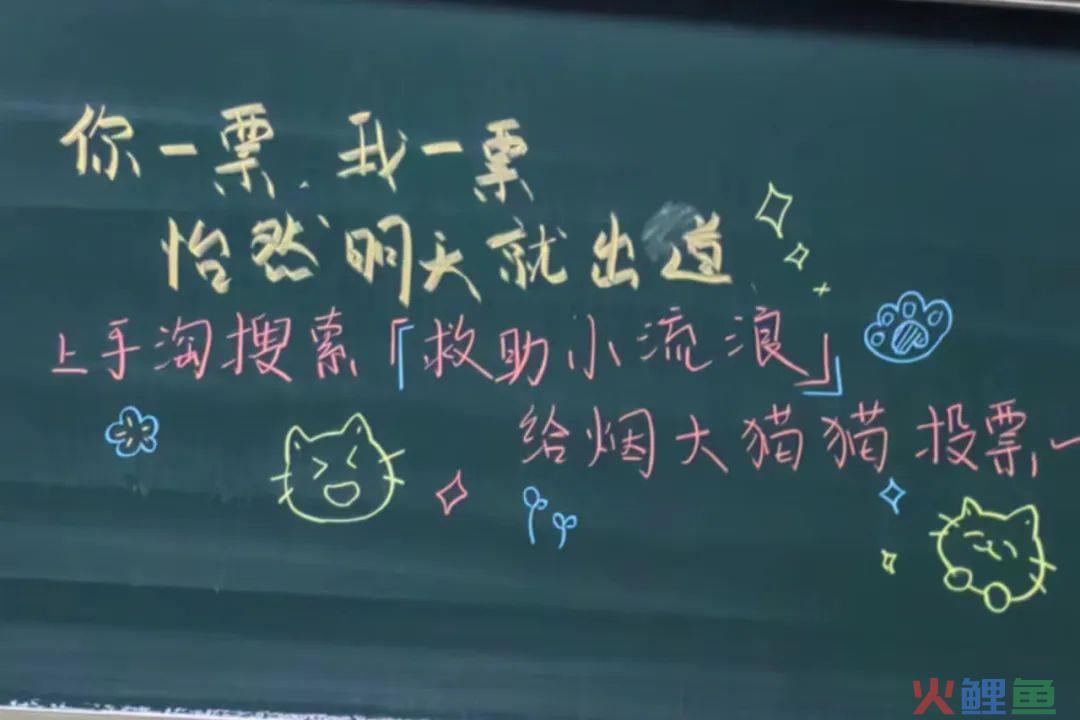 你一票、我一票
怡然明天就出道
上手淘搜索「救助小流浪」
给烟大猫猫投票~
火鲤鱼